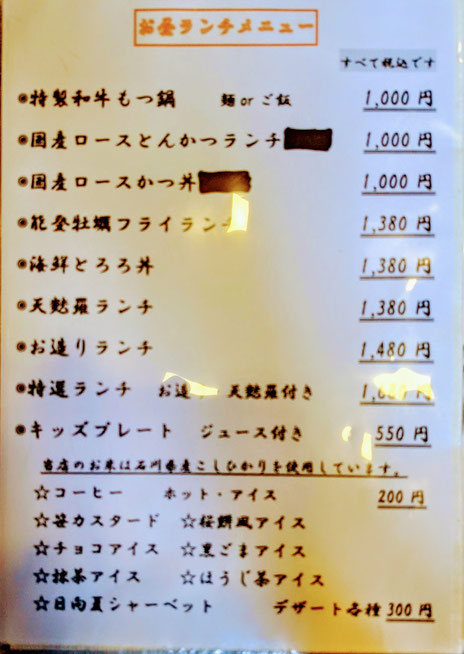 お昼ランチメニュー
すべて税込です
◉特製和牛もつ鍋 麺 or ご飯 1,000 円
◉国産ロースとんかつランチ 1,000 円
◉国産ロースかつ丼 1,000 円
◉能登牡蠣フライランチ 1,380 円
◉海鮮とろろ丼 1,380 円
◉天麩羅ランチ 1,380 円
◉お造りランチ 1,480 円
◉特選ランチ お造 天麩羅付き 円
◉キッズプレート ジュース付き 550 円
当店のお米は石川県産こしひかりを使用しています。
☆コーヒー ホット・アイス 200 円
☆笹カスタード ☆桜餅風アイス
☆チョコアイス ☆黒ごまアイス
☆抹茶アイス ☆ほうじ茶アイス
☆日向夏シャーベット デザート各種 300 円